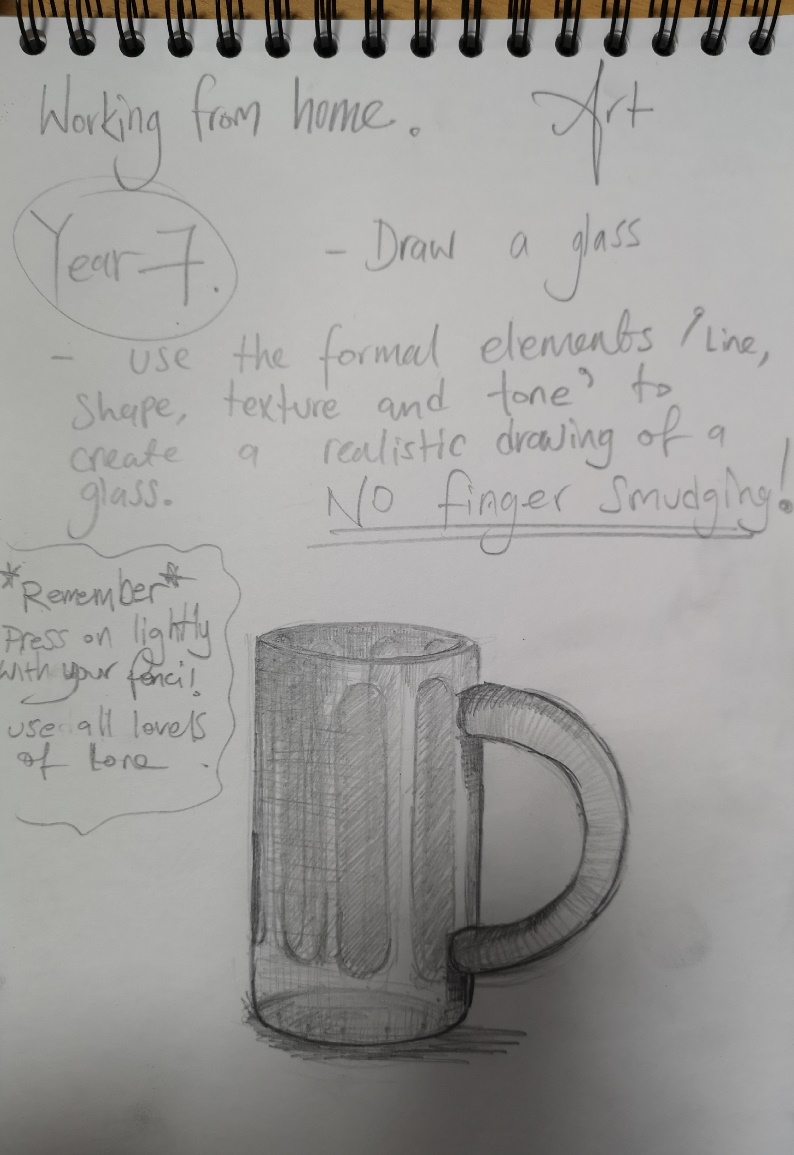 Working from home.
Art
Year 7.
- Draw a glass
- use the formal elements 'Line,
shape, texture and tone' to
create a realistic drawing of a
glass.
NO finger smudging!
*Remember*
Press on lightly
with your pencil
use all levels
of tone.